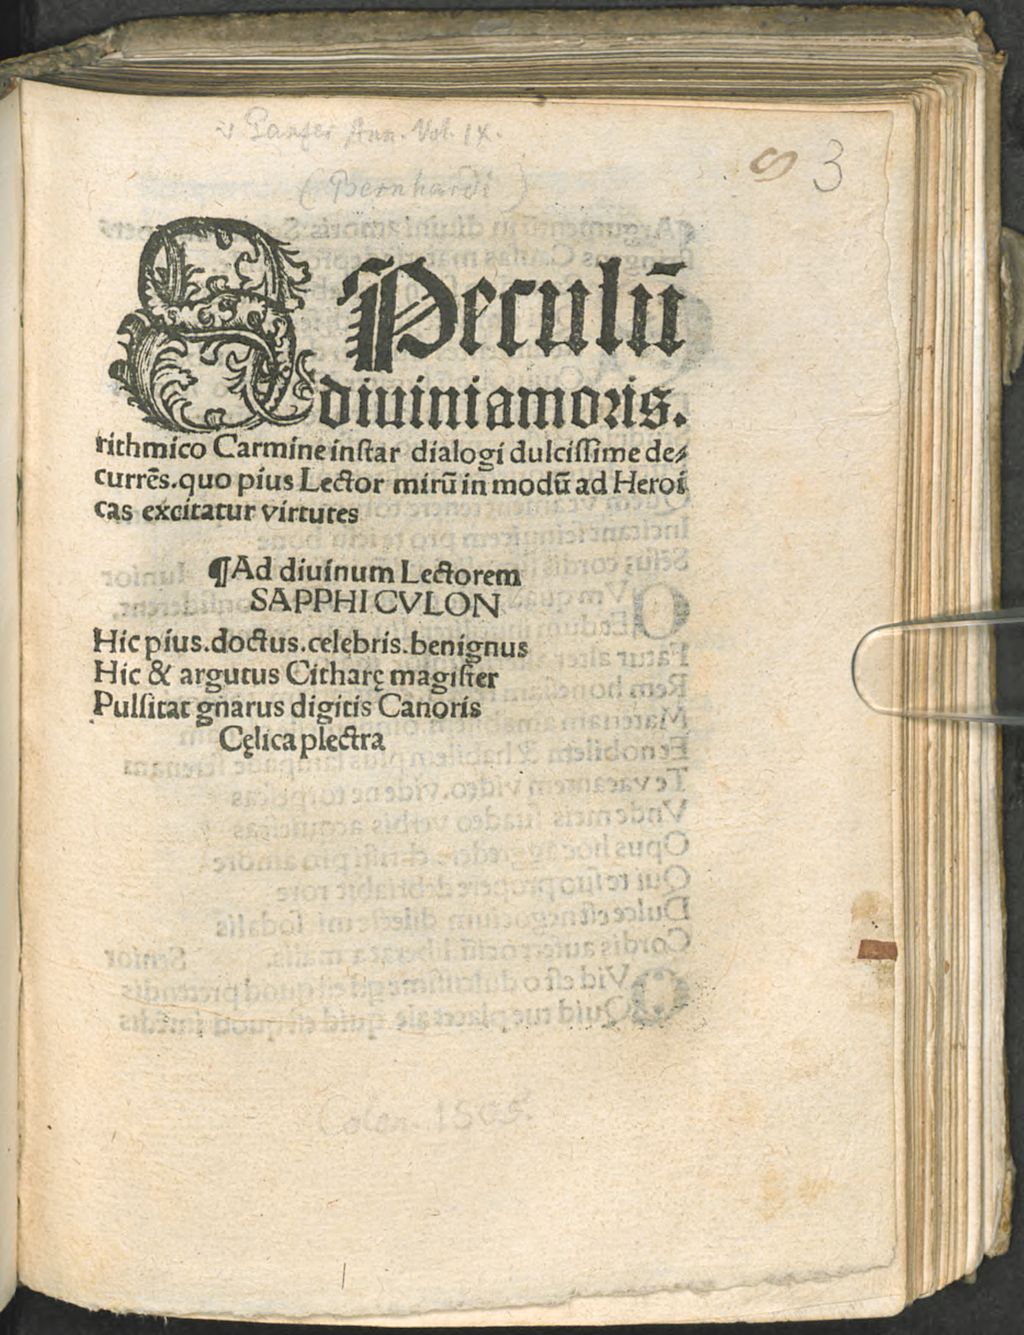 v Panzer Ann. Vol. IX.
(Bernhardi)
3
SPeculū
diuini amoris.
rithmico Carmine inſtar dialogi dulciſſime de⸗
currēs.quo pius Lector mirū in modū ad Heroi
cas excitatur virtutes
¶Ad diuinum Lectorem
SAPPHICVLON
Hic pius.doctus.celebris.benignus
Hic & argutus Citharę magiſter
Pulſitat gnarus digitis Canoris
Cęlica plectra
Colon. 1505.